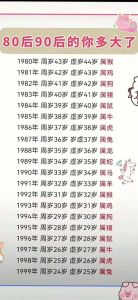 80后90后的你多大了
1980年 周岁43岁 虚岁44岁 属猴
1981年 周岁42岁 虚岁43岁 属鸡
1982年 周岁41岁 虚岁42岁 属狗
1983年 周岁40岁 虚岁41岁 属猪
1984年 周岁39岁 虚岁40岁 属鼠
1985年 周岁38岁 虚岁39岁 属牛
1986年 周岁37岁 虚岁38岁 属虎
1987年 周岁36岁 虚岁37岁 属兔
1988年 周岁35岁 虚岁36岁 属龙
1989年 周岁34岁 虚岁35岁 属蛇
1990年 周岁33岁 虚岁34岁 属马
1991年 周岁32岁 虚岁33岁 属羊
1992年 周岁31岁 虚岁32岁 属猴
1993年 周岁30岁 虚岁31岁 属鸡
1994年 周岁29岁 虚岁30岁 属狗
1995年 周岁28岁 虚岁29岁 属猪
1996年 周岁27岁 虚岁28岁 属鼠
1997年 周岁26岁 虚岁27岁 属牛
1998年 周岁25岁 虚岁26岁 属虎
1999年 周岁24岁 虚岁25岁 属兔